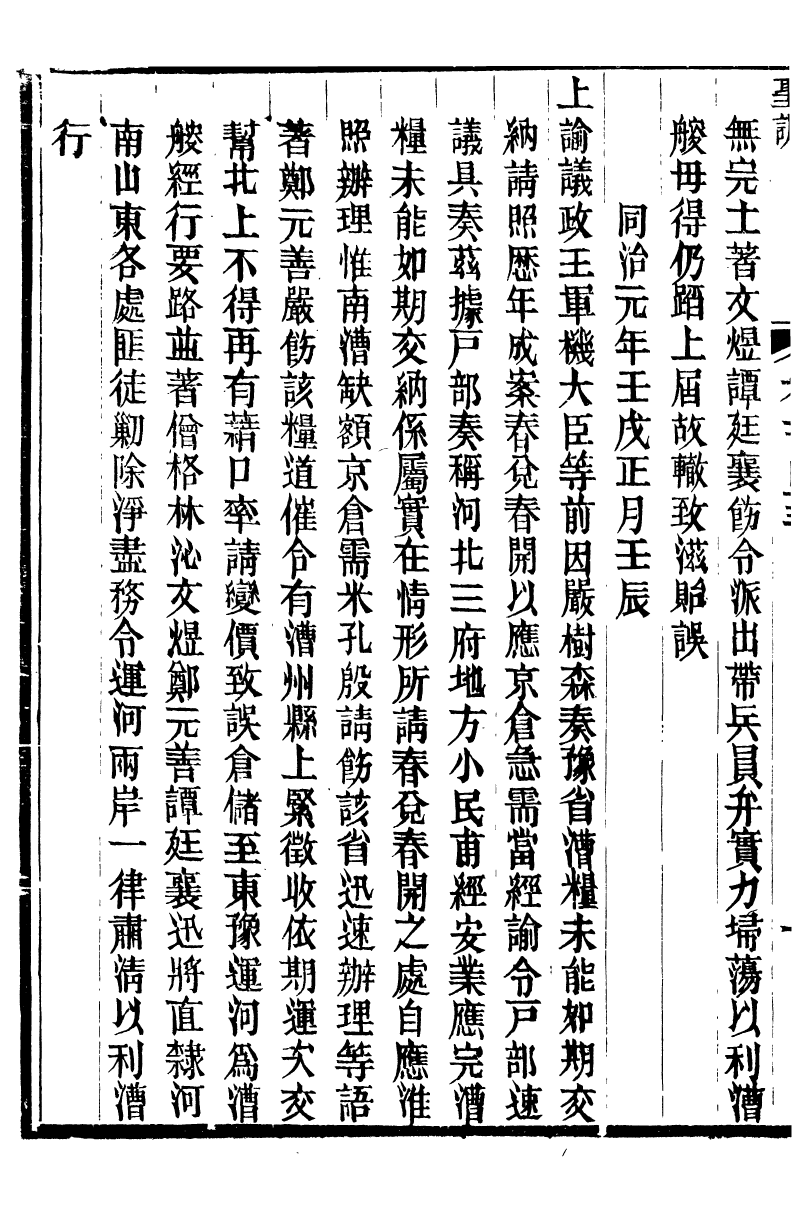 聖訓
無完土著文煜譚廷襄飭令派出帶兵員弁實力埽蕩以利漕
艘毋得仍蹈上屆故轍致滋貽誤
同治元年壬戌正月壬辰
上諭議政王軍機大臣等前因嚴樹森奏豫省漕糧未能如期交
納請照歷年成案春兌春開以應京倉急需當經諭令戸部速
議具奏茲據戸部奏稱河北三府地方小民甫經安業應完漕
糧未能如期交納係屬實在情形所請春兌春開之處自應准
照辦理惟南漕缺額京倉需米孔殷請飭該省迅速辦理等語
著鄭元善嚴飭該糧道催令有漕州縣上緊徵收依期運次交
幫北上不得再有藉口率請變價致誤倉儲至東豫運河為漕
艘經行要路並著僧格林沁文煜鄭元善譚廷襄迅將直隸河
南山東各處匪徒勦除淨盡務令運河兩岸一律肅清以利漕
行